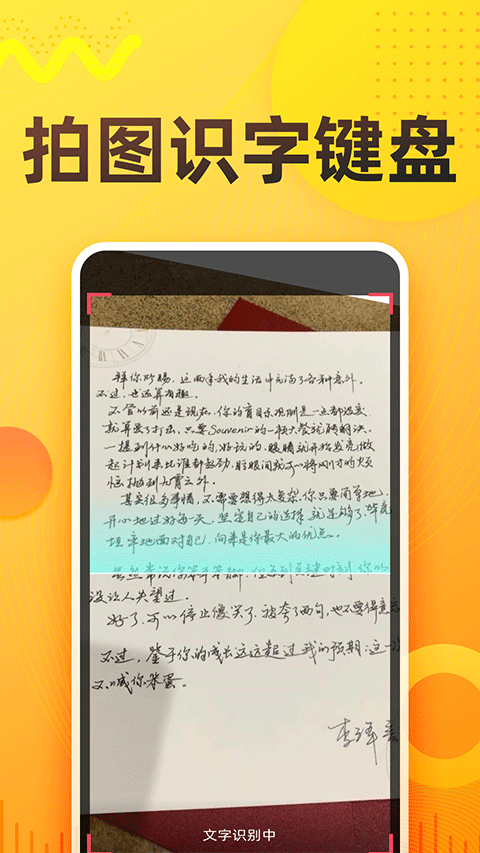 拍图识字键盘
拜你所赐,这两年我的生活中充满了各种意外。
不过,也还算有趣。
不管以前还是现在,你的盲目乐观则是一点都没变
就算受了打击,只要Souvenir的一顿大餐就能解决。
一提到什么好吃的,好玩的,眼睛就开始发亮,做
起计划来比谁都起劲,眨眼间就可以将刚才的烦
恼抛到九霄云外。
其实很多事情,不需要想得太复杂,你只要简单地、
开心地过好每一天,坚定自己的选择,就足够了。
坦率地面对自己,向来是你最大的优点。
虽然常说你笨手笨脚,但每到关键时刻,你
没让人失望过。
好了,可以停止傻笑了,被夸了两句,也不要得意
不过,鉴于你的成长远远超过我的预期,这一次
不喊你笨蛋。
李泽言
文字识别中